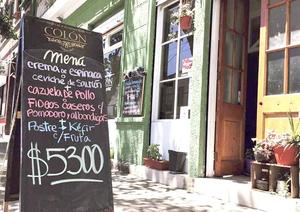 COLÓN
menú
crema DE espinaca
O
ceviche DE Salmón
+
cazuela DE Pollo
O
Fideos caseros c/
Pomodoro y albóndigas
+
Postre Kéfir
c/Fruta
$5300